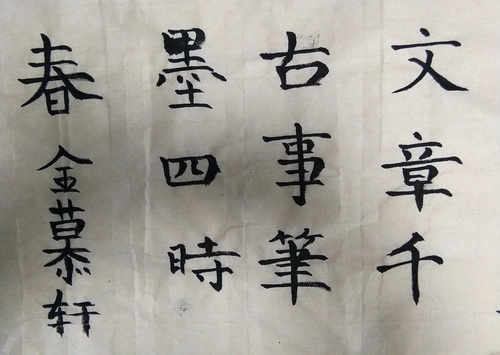 文章千
古事筆
墨四時
春
金慕轩